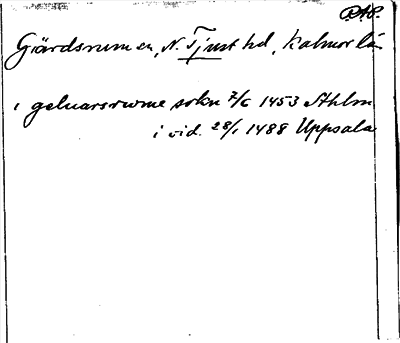 RAP.
Gärdsrum sn, N. Tjust hd, Kalmar län
i geluarsrwme sokn 7/6 1453 Sthlm
i vid. 28/1 1488 Uppsala